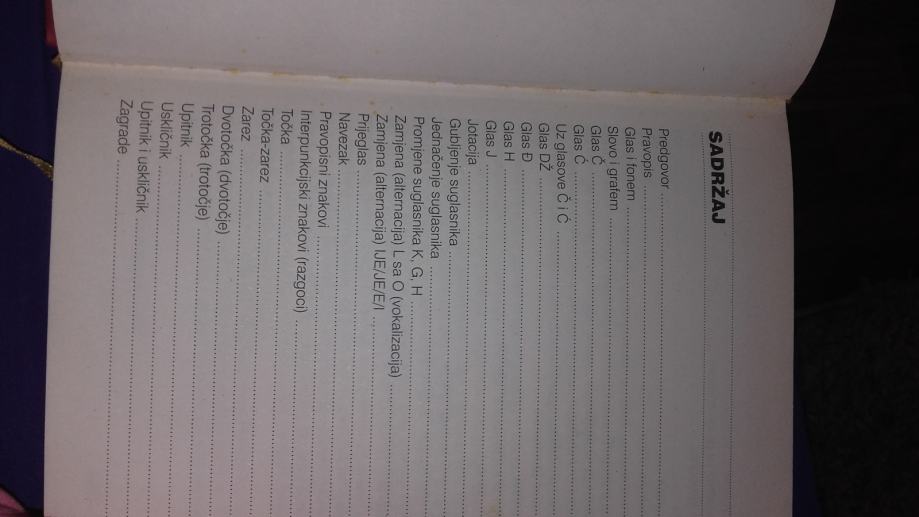 SADRŽAJ
Predgovor
Pravopis
Glas i fonem
Slovo i grafem
Glas Č
Glas Ć
Uz glasove Č i Ć
Glas DŽ
Glas Đ
Glas H
Glas J
Jotacija
Gubljenje suglasnika
Jednačenje suglasnika
Promjene suglasnika K, G, H
Zamjena (alternacija) L sa O (vokalizacija)
Zamjena (alternacija) IJE/JE/E/I
Prijeglas
Navezak
Pravopisni znakovi
Interpunkcijski znakovi (razgoci)
Točka
Točka-zarez
Zarez
Dvotočka (dvotočje)
Trotočka (trotočje)
Upitnik
Uskličnik
Upitnik i uskličnik
Zagrade